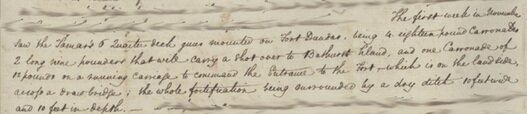 The first week in November
saw the Tamar's 6 Quarter deck guns mounted on Fort Dundas, being 4 eighteen pound Carronades
2 long nine pounders that will carry a shot over to Bathurst Island, and one Carronade of
12 pounds on a running carriage to command the Entrance to the Fort, which is on the Land side,
across a draw bridge; the whole fortification being surrounded by a dry ditch 10 feet wide
and 10 feet in depth. —